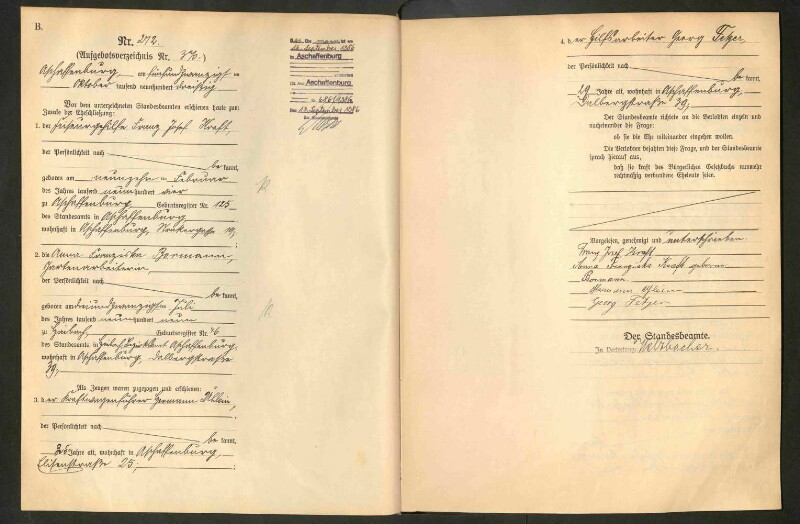 B.
Nr. 272.
(Aufgebotsverzeichnis Nr. 376.)
Aschaffenburg, am fünfundzwanzigsten
Oktober tausend neunhundert dreißig
Vor dem unterzeichneten Standesbeamten erschienen heute zum
Zwecke der Eheschließung:
1. der Friseurgehilfe Franz Josef Kraft,
der Persönlichkeit nach
be kannt,
geboren am neunzehn ten Februar
des Jahres tausend neunhundert vier
zu Aschaffenburg, Geburtsregister Nr. 125
des Standesamts in Aschaffenburg
wohnhaft in Aschaffenburg, 19;
2. die Anna Franziska Bormann,
Gartenarbeiterin,
der Persönlichkeit nach
be kannt,
geboren am dreiundzwanzigsten Juli
des Jahres tausend neunhundert neun
zu Haibach, Geburtsregister Nr. 46
des Standesamts in Haibach, Bezirksamt Aschaffenburg,
wohnhaft in Aschaffenburg, Dalbergstraße
39;
Als Zeugen waren zugezogen und erschienen:
3. der Kraftwagenführer Hermann
der Persönlichkeit nach
be kannt,
Jahre alt, wohnhaft in Aschaffenburg,
Elisenstraße 25;
September 1986
in Aschaffenburg
Aschaffenburg
September 1986
4. der Hilfsarbeiter Georg Fetzer
der Persönlichkeit nach
be kannt,
29 Jahre alt, wohnhaft in Aschaffenburg,
Dalbergstraße 39;
Der Standesbeamte richtete an die Verlobten einzeln und
nacheinander die Frage:
ob sie die Ehe miteinander eingehen wollen.
Die Verlobten bejahten diese Frage, und der Standesbeamte
sprach hierauf aus,
daß sie kraft des Bürgerlichen Gesetzbuchs nunmehr
rechtmäßig verbundene Eheleute seien.
Vorgelesen, genehmigt und unterschrieben
Franz Josef Kraft
Anna Franziska Kraft geborene
Bormann.
Hermann
Georg Fetzer
Der Standesbeamte.
In Vertretung: